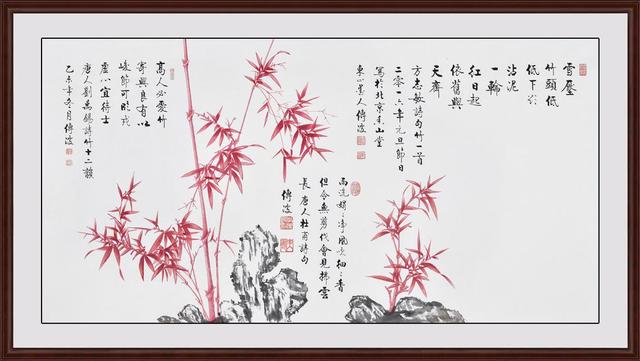 雪壓
竹頭低
低下欲
沾泥
一輪
红日起
依舊與
天齊
方志敏詩句竹一首
二零一六年元旦節日
寫於北京香山堂
雨洗娟々凈風吹細々香
但令無剪伐會見拂雲
長 唐人杜甫詩句
傅波
高人必愛竹
寄興良有以
峻節可臨戎
虛心宜待士
唐人劉禹錫詩竹十二韻
乙未年冬月傅波